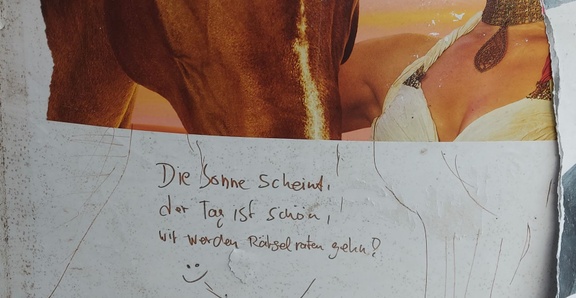 Die Sonne scheint,
der Tag ist schön,
wir werden Rätselraten gehn?